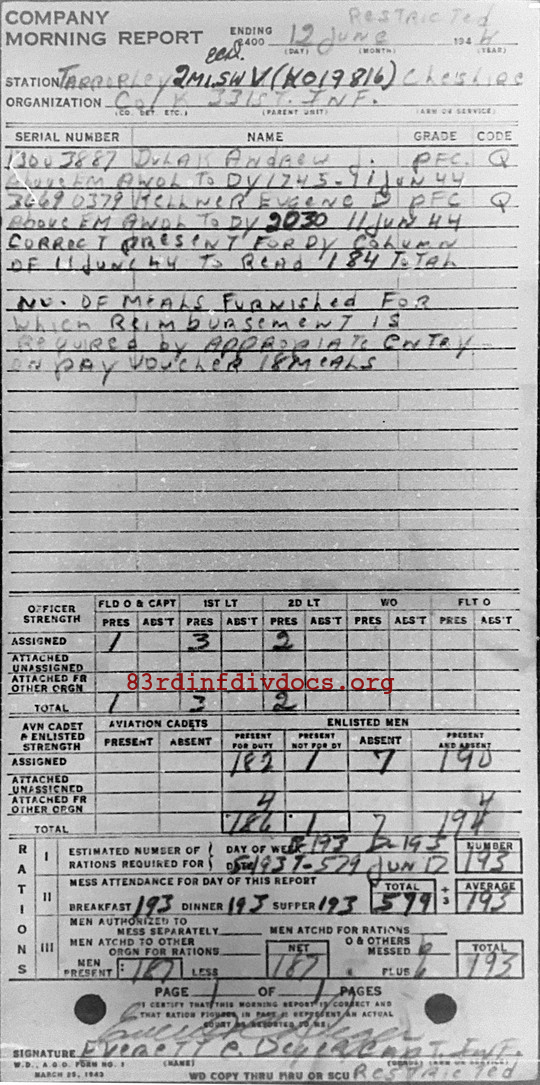 RESTRICTED
COMPANY
MORNING REPORT
ENDING
2400 12 JUNE 194
(DAY) (MONTH) (YEAR)
STATION TARPORLEY 2M1.SWV (HO19816) Cheshire
ORGANIZATION Co K 331ST. INF.
(CO. DET. ETC.) (PARENT UNIT) (ARM OR SERVICE)
SERIAL NUMBER NAME GRADE CODE
13003887 DULAK ANDREW J. PFC. Q
ABOVE EM AWOL TO DY 1745-11 JUN 44
36690379 KELLNER EUGENE D PFC Q
ABOVE EM AWOL TO DY 2030 11 JUN 44
CORRECT PRESENT FOR DY COLUMN
OF 11 JUNE 44 TO READ 184 TOTAL
NO. OF MEALS FURNISHED FOR
WHICH REIMBURSEMENT IS
REQUIRED by APPROPRIATE ENTRY
ON PAY VOUCHER 18 MEALS
OFFICER STRENGTH FLD O & CAPT 1ST LT 2D LT WO FLT O
PRES ABS'T PRES ABS'T PRES ABS'T PRES ABS'T PRES ABS'T
ASSIGNED 1 3 2
ATTACHED UNASSIGNED
ATTACHED FR OTHER ORGN
83rdinfdivdocs.org
TOTAL 1 3 2
AVN CADET & ENLISTED STRENGTH AVIATION CADETS ENLISTED MEN
PRESENT ABSENT PRESENT FOR DUTY PRESENT NOT FOR DY ABSENT PRESENT AND ABSENT
ASSIGNED 182 1 7 190
ATTACHED UNASSIGNED
ATTACHED FR OTHER ORGN 4 4
TOTAL 186 1 7 194
RATIONS
I ESTIMATED NUMBER OF RATIONS REQUIRED FOR DAY OF WEEK B-193 D-193 NUMBER
DATE S-193 T-579 JUN 17 193
II MESS ATTENDANCE FOR DAY OF THIS REPORT TOTAL ÷ 3 AVERAGE
BREAKFAST 193 DINNER 193 SUPPER 193 579 193
III MEN AUTHORIZED TO MESS SEPARATELY MEN ATCHD FOR RATIONS
MEN ATCHD TO OTHER ORGN FOR RATIONS NET O & OTHERS MESSED 6 TOTAL
MEN PRESENT 187 LESS 187 PLUS 6 193
PAGE 1 OF 1 PAGES
I CERTIFY THAT THIS MORNING REPORT IS CORRECT AND
THAT RATION FIGURES IN PART II REPRESENT AN ACTUAL
COUNT AS REPORTED TO ME
SIGNATURE Everett C.
W.D., A.G.O. FORM NO. 1 (NAME) (GRADE) (ARM OR SERVICE)
MARCH 25, 1943 WD COPY THRU MRU OR SCU Restricted